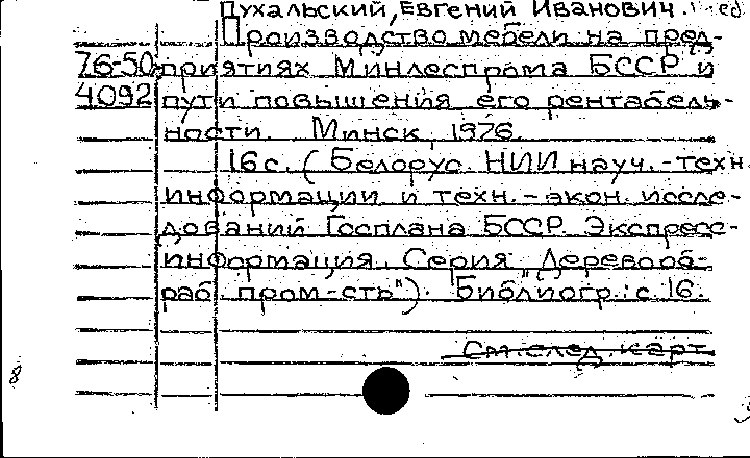 Пухальский, Евгений Иванович.
Производство мебели на пред-
76-50 приятиях Минлеспрома БССР и
4092 пути повышения его рентабель-
ности. Минск, 1976.
16 с. (Белорус. НИИ науч.-техн.
информации и техн.-экон. иссле-
дований Госплана БССР. Экспресс-
информация. Серия "Деревооб-
раб. пром-сть"). Библиогр.: с. 16.
См. след. карт.
8